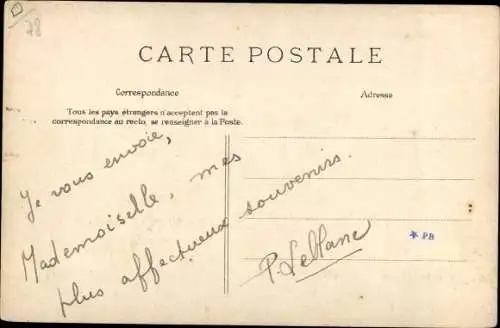 78
CARTE POSTALE
Correspondance
Adresse
Tous les pays étrangers n'acceptent pas la
correspondance au recto, se renseigner à la Poste.
Je vous envoie,
Mademoiselle, mes
plus affectueux souvenirs.
P. Leblanc
* PB